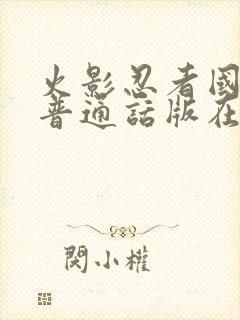 火影忍者國
普通話版在
閔小權